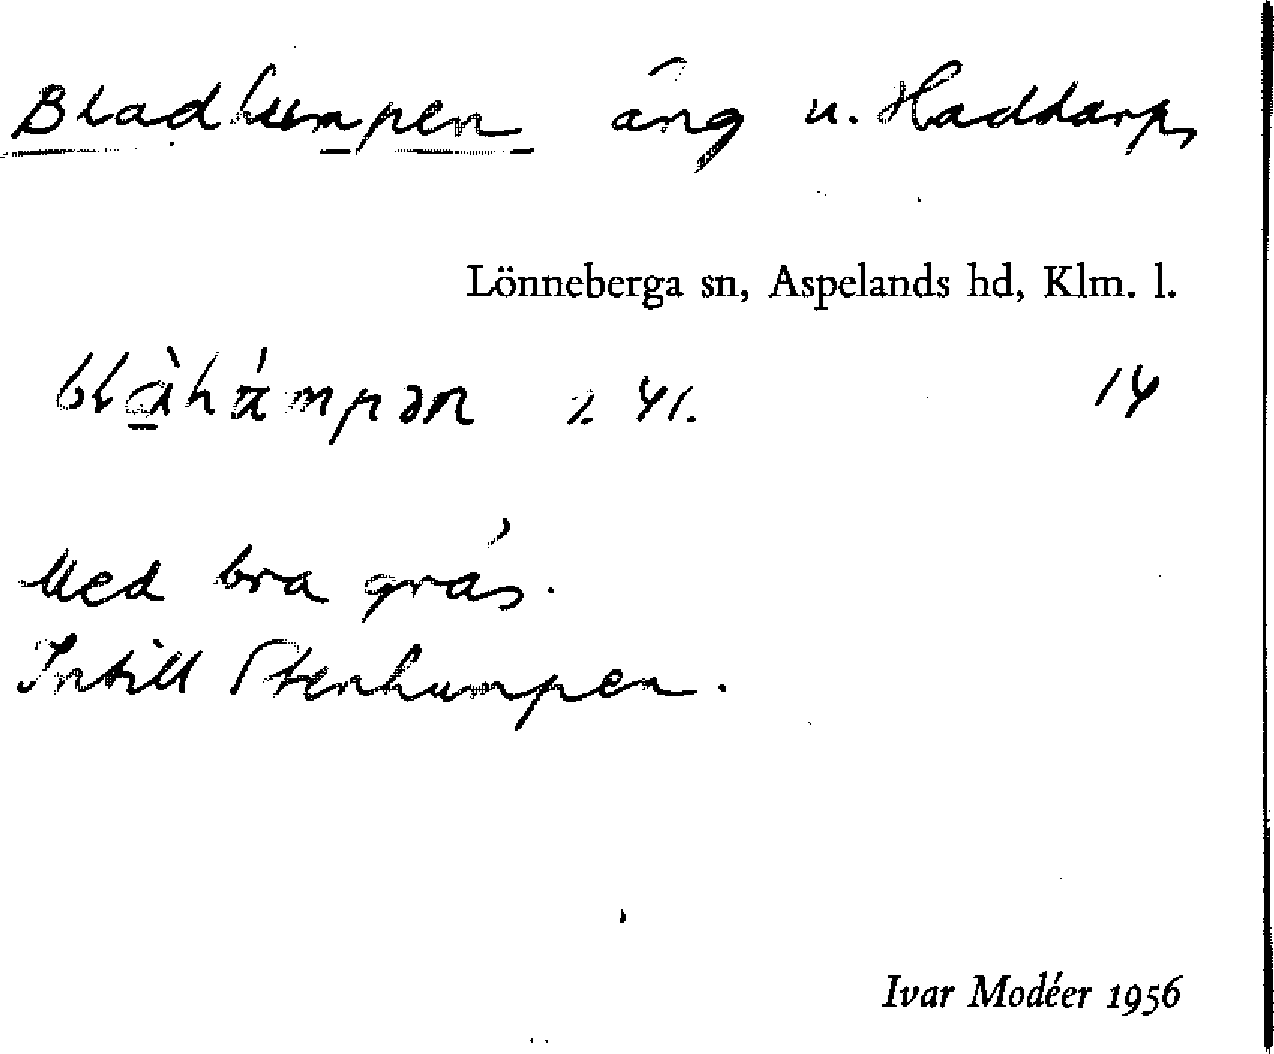 Bladhumpen äng u. Haddarp,
Lönneberga sn, Aspelands hd, Klm. l.
14
Med bra gräs.
Intill Stenhumpen.
Ivar Modéer 1956